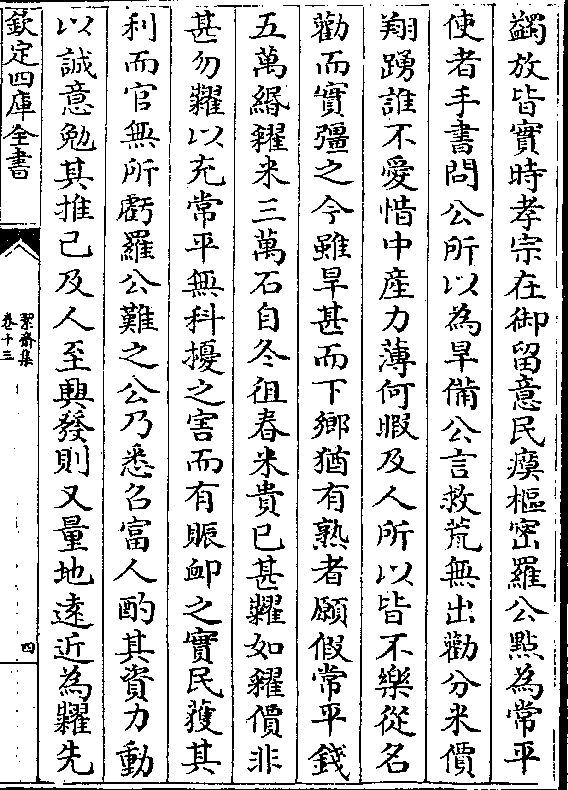 蠲放皆實時孝宗在御留意民瘼樞密羅公點為常平
使者手書問公所以為旱備公言救荒無出勸分米價
翔踴誰不愛惜中產力薄何暇及人所以皆不樂從名
勸而實彊之今雖旱甚而下鄉猶有熟者願假常平錢
五萬緡糴米三萬石自冬徂春米貴已甚糶如糴價非
甚勿糶以充常平無科擾之害而有賑卹之實民蒦其
利而官無所虧羅公難之公乃悉召富人酌其資力動
以誠意勉其推己及人至興發則又量地遠近為糶先
欽定四庫全書
絜齋集
卷十三
四